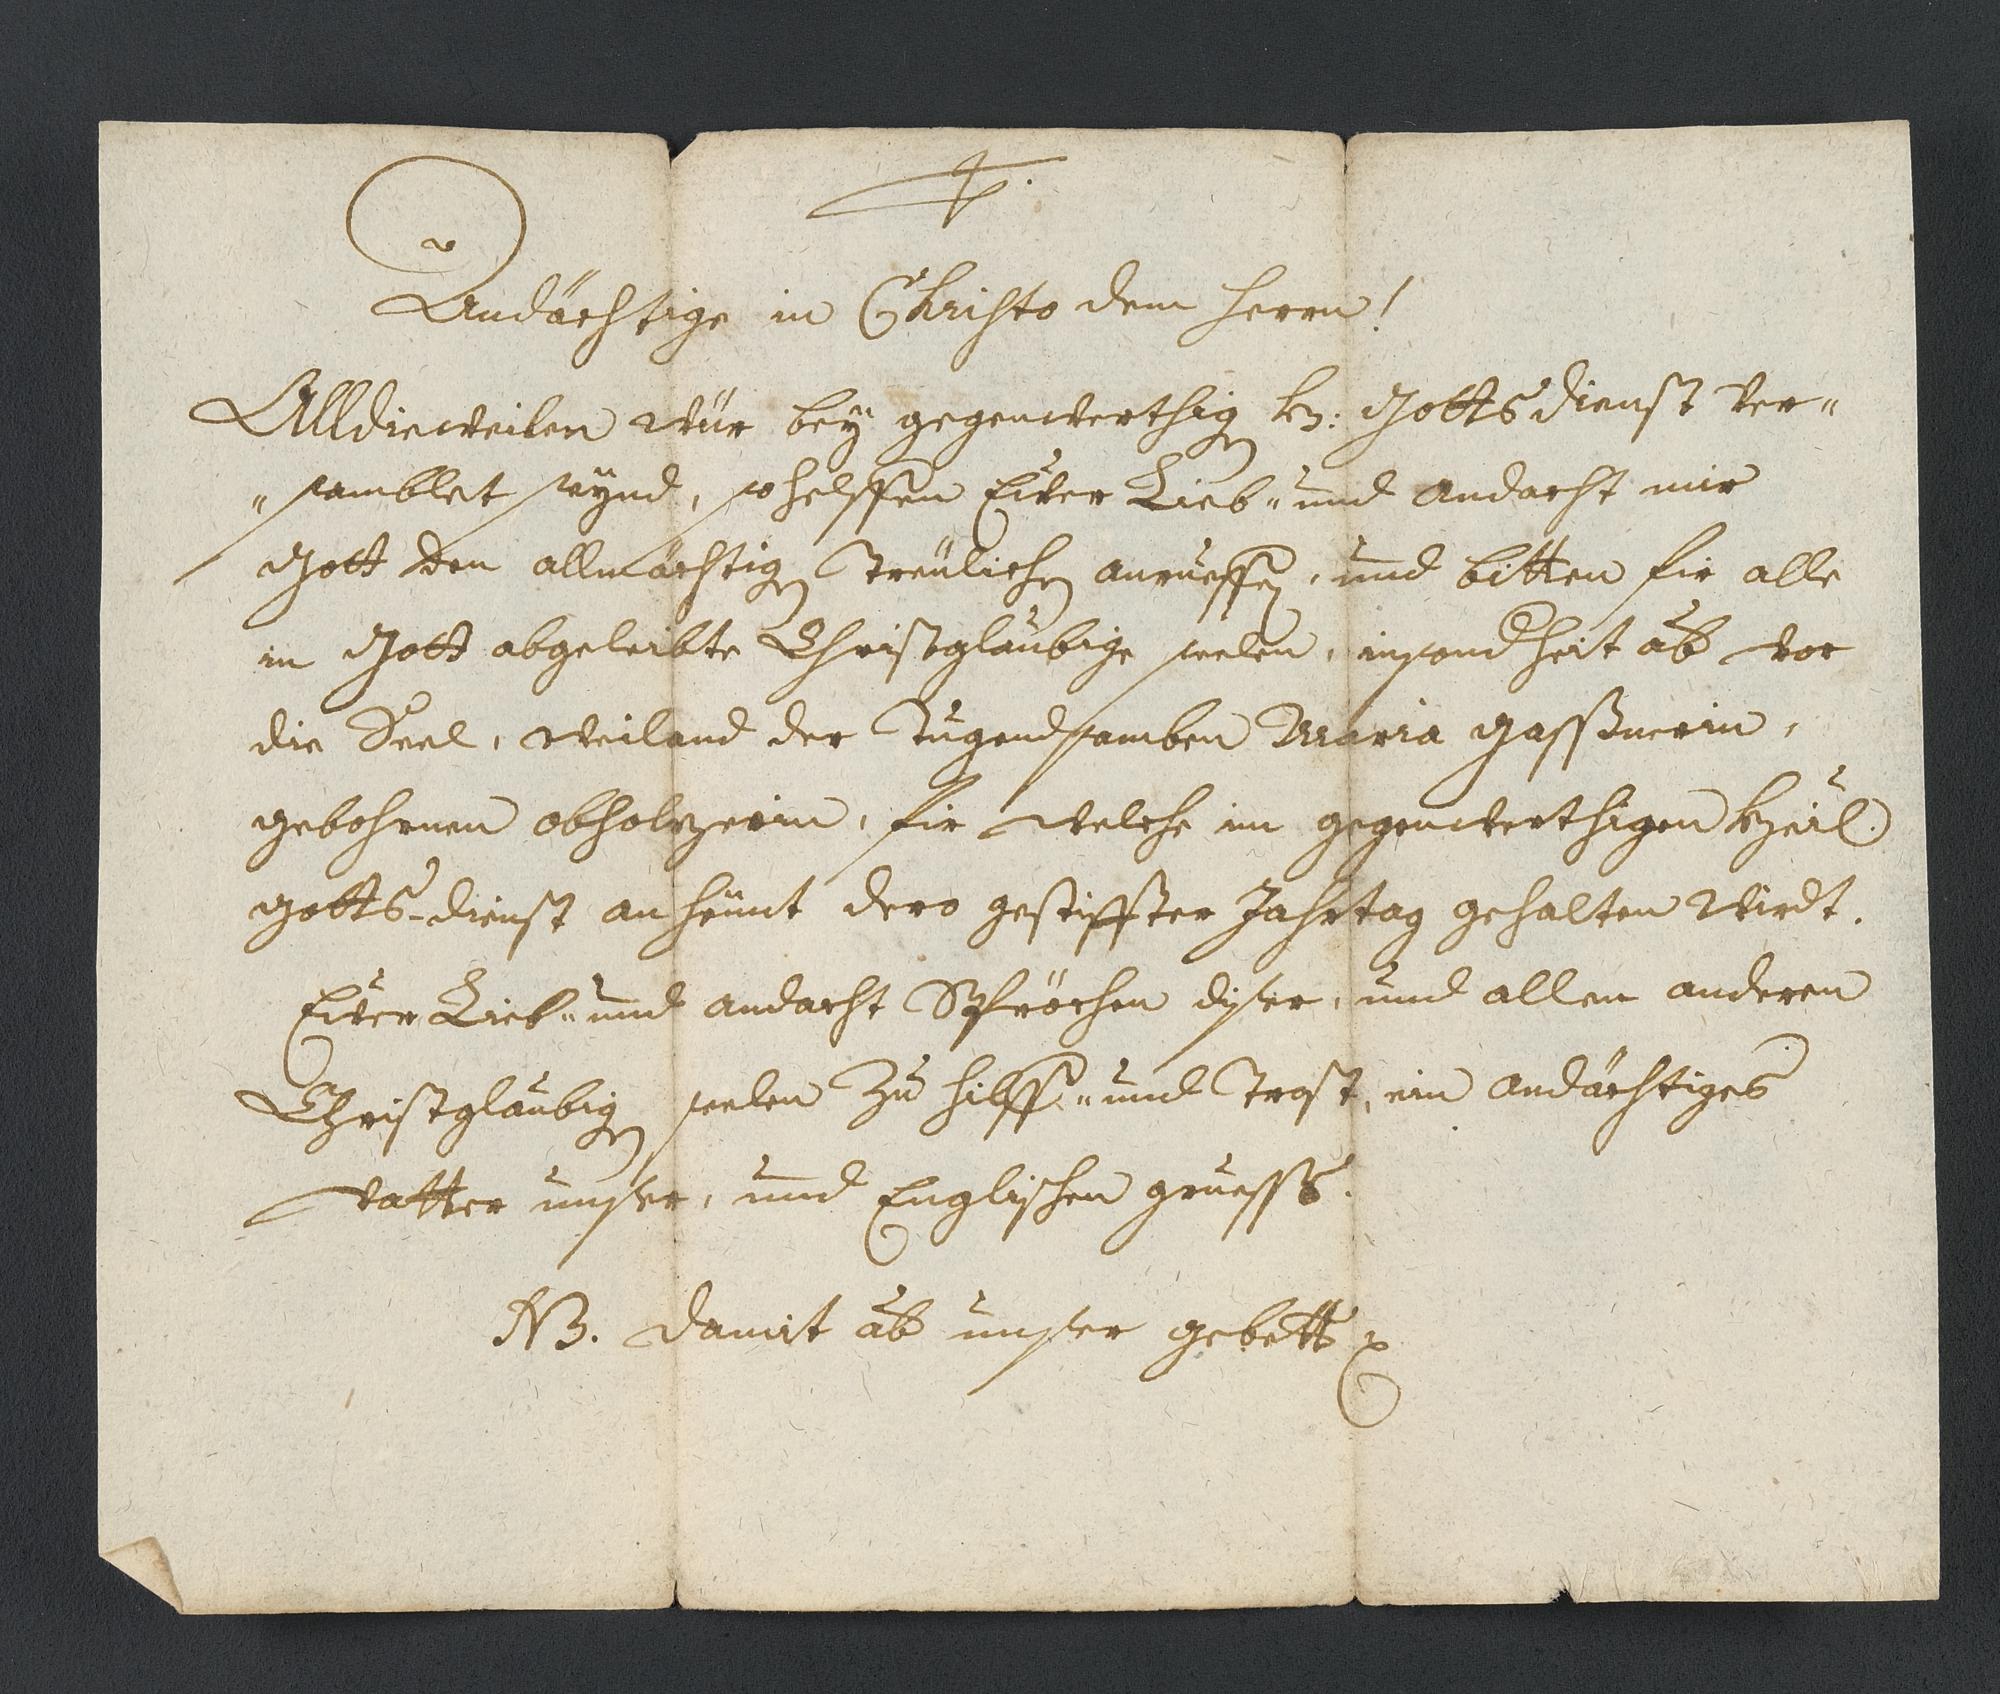 Andächtige in Christo dem Herrn!
Alldieweilen wür bey gegenwerthig H: Gottsdienst ver„
„samblet seynd, so helffen Eüer Lieb„ und andacht mir
Gott den allmächtig Treülichen anrueffen, und bitten fir alle
in Gott abgeleibte Christglaubige seelen, insondheit ab vor
die Seel, weiland der Tugendsamben Maria Gasßnerin,
gebohrnen obholzerin, fir welche im gegenwerthigen Heil.
gotts-dienst an heünt dero gestiffter Jahrtag gehalten wirdt.
Eüer Lieb„ und andacht Spröchen diser, und allen anderen
Christglaubigen seelen zu hilff„ und Trost, ein andächtiges
vatter unser, und Englischen gruess.
NB. damit ab unser gebett